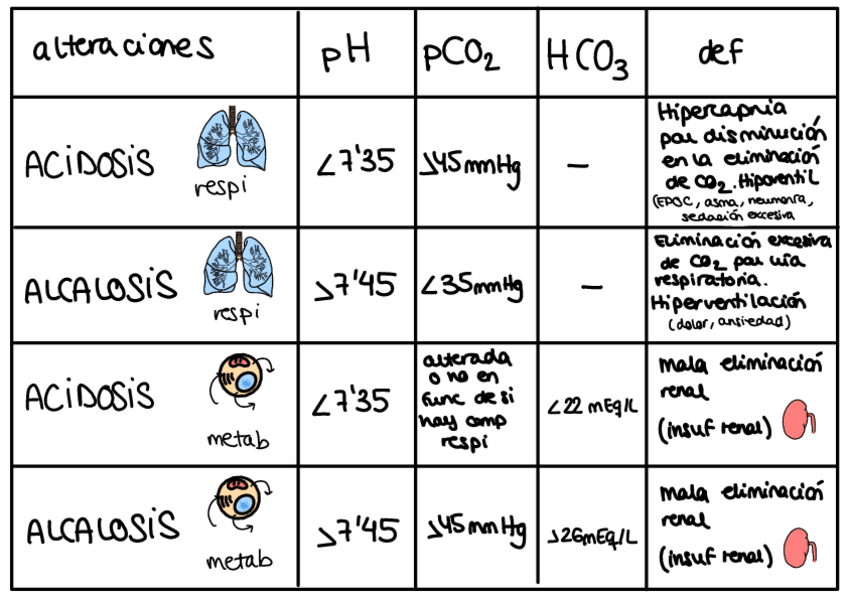 alteraciones
pH
pCO₂
HCO₃
def
ACIDOSIS
respi
<7'35
>45mmHg
–
Hipercapnia
por disminución
en la eliminación
de CO₂. Hipoventil
(EPOC, asma, neumonía,
sedación excesiva
ALCALOSIS
respi
>7'45
<35mmHg
–
Eliminación excesiva
de CO₂ por vía
respiratoria.
Hiperventilación
(dolor, ansiedad)
ACIDOSIS
metab
<7'35
alterada
o no en
func de si
hay comp
respi
<22 mEq/L
mala eliminación
renal
(insuf renal)
ALCALOSIS
metab
>7'45
>45mmHg
>26mEq/L
mala eliminación
renal
(insuf renal)